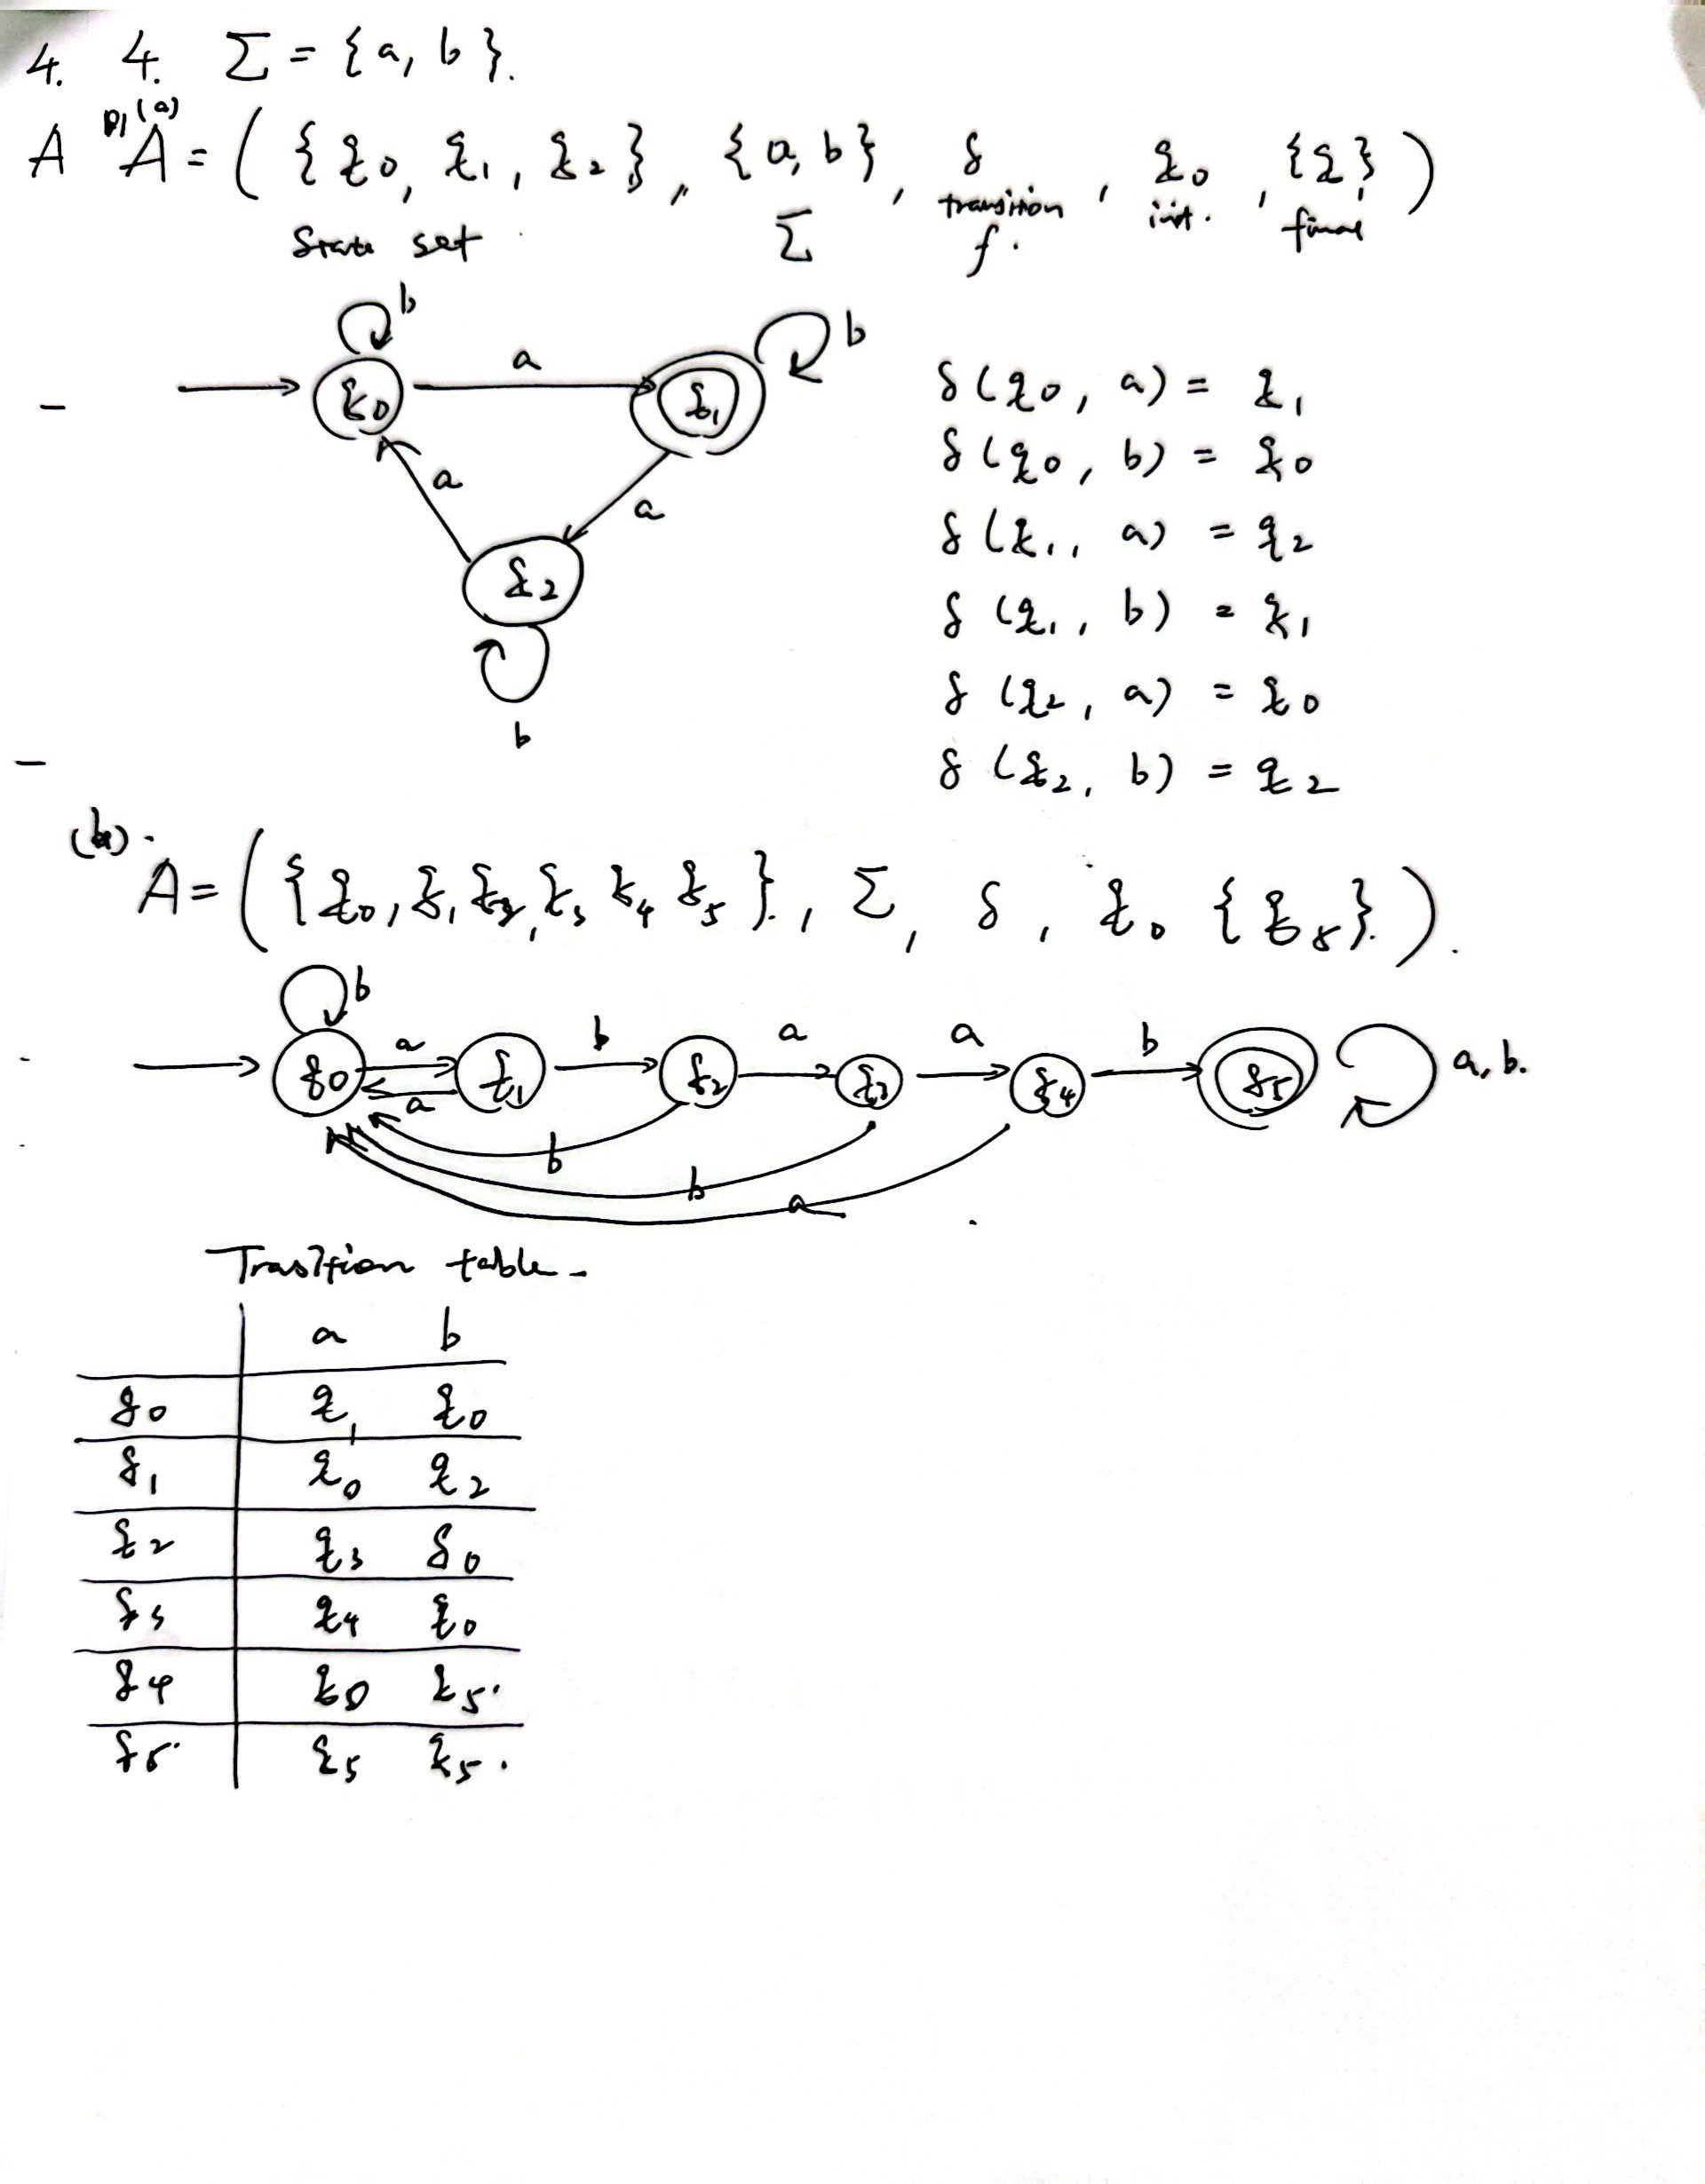 4. 4. Σ = {a, b}.
(a)
A A = ( {q0, q1, q2}, {a, b}, δ, q0, {q1} )
State set Σ transition f. init. final
b
a b
q0 q1
a a
q2
b
δ(q0, a) = q1
δ(q0, b) = q0
δ(q1, a) = q2
δ(q1, b) = q1
δ(q2, a) = q0
δ(q2, b) = q2
(b).
A = ( {q0, q1 q2, q3 q4 q5}., Σ, δ, q0 {q5}. ).
b
a b a a b
q0 q1 q2 q3 q4 q5 a, b.
a
b
b
a
Trasition table
a b
q0 q1 q0
q1 q0 q2
q2 q3 q0
q3 q4 q0
q4 q0 q5
q5 q5 q5.